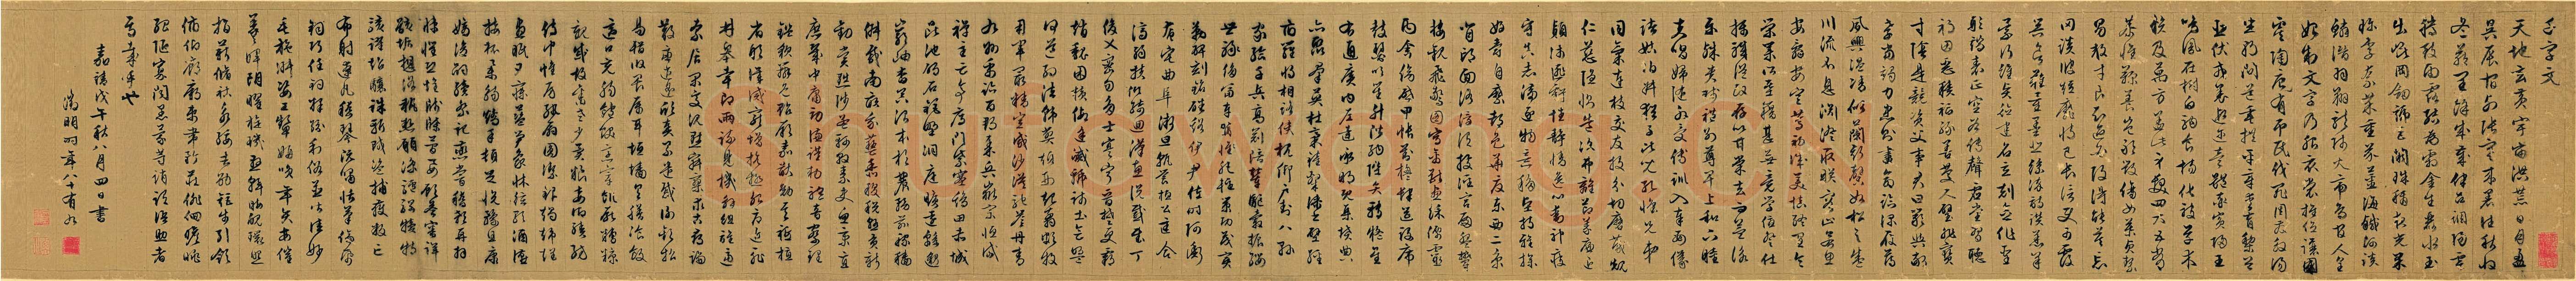 千字文
天地玄黃宇宙洪荒日月盈
昃辰宿列張寒來暑往秋收
冬藏閏餘成歲律呂調陽雲
騰致雨露結為霜金生麗水玉
出崑岡劍號巨闕珠稱夜光果
珍李柰菜重芥薑海鹹河淡
鱗潛羽翔龍師火帝鳥官人皇
始制文字乃服衣裳推位讓國
虞陶唐有弔民伐罪周發殷湯
坐朝問道垂拱平章愛育黎首
臣伏戎羌遐邇壹體率賓歸王
鳴鳳在樹白駒食場化被草木
賴及萬方蓋此身髮四大五常
恭惟鞠養豈敢毀傷女慕貞絜
男效才良知過必改得能莫忘
罔談彼短靡恃己長信使可覆
器欲難量墨悲絲染詩讚羔羊
景行維賢克念作聖德建名立
形端表正空谷傳聲虛堂習聽
禍因惡積福緣善慶尺璧非寶
寸陰是競資父事君曰嚴與敬
孝當竭力忠則盡命臨深履薄
夙興溫凊似蘭斯馨如松之盛
川流不息淵澄取映容止若思
言辭安定篤初誠美慎終宜令
榮業所基籍甚無竟學優登仕
攝職從政存以甘棠去而益詠
樂殊貴賤禮別尊卑上和下睦
夫唱婦隨外受傅訓入奉母儀
諸姑伯叔猶子比兒孔懷兄弟
同氣連枝交友投分切磨箴規
仁慈隱惻造次弗離節義廉退
顛沛匪虧性靜情逸心動神疲
守真志滿逐物意移堅持雅操
好爵自縻都邑華夏東西二京
背邙面洛浮渭據涇宮殿盤鬱
樓觀飛驚圖寫禽獸畫綵仙靈
丙舍傍啟甲帳對楹肆筵設席
鼓瑟吹笙升階納陛弁轉疑星
右通廣內左達承明既集墳典
亦聚群英杜稾鍾隸漆書壁經
府羅將相路俠槐卿戶封八縣
家給千兵高冠陪輦驅轂振纓
世祿侈富車駕肥輕策功茂實
勒碑刻銘磻溪伊尹佐時阿衡
奄宅曲阜微旦孰營桓公匡合
濟弱扶傾綺迴漢惠說感武丁
俊乂密勿多士寔寧晉楚更霸
趙魏困橫假途滅虢踐土會盟
何遵約法韓弊煩刑起翦頗牧
用軍最精宣威沙漠馳譽丹青
九州禹跡百郡秦并嶽宗恆岱
禪主云亭雁門紫塞雞田赤城
昆池碣石鉅野洞庭曠遠緜邈
巖岫杳冥治本於農務茲稼穡
俶載南畝我藝黍稷稅熟貢新
勸賞黜陟孟軻敦素史魚秉直
庶幾中庸勞謙謹敕聆音察理
鑑貌辨色貽厥嘉猷勉其祗植
省躬譏誡寵增抗極殆辱近恥
林皋幸即兩疏見機解組誰逼
索居閒處沉默寂寥求古尋論
散慮逍遙欣奏累遣慼謝歡招
易輶攸畏屬耳垣牆具膳飡飯
適口充腸飽飫烹宰飢厭糟糠
親戚故舊老少異糧妾御績紡
侍巾帷房紈扇圓潔銀燭煒煌
晝眠夕寐藍筍象牀絃歌酒讌
接杯舉觴矯手頓足悅豫且康
嫡後嗣續祭祀烝嘗稽顙再拜
悚懼恐惶牋牒簡要顧答審詳
骸垢想浴執熱願涼驢騾犢特
駭躍超驤誅斬賊盜捕獲叛亡
布射遼丸嵇琴阮嘯恬筆倫紙
鈞巧任釣釋紛利俗並皆佳妙
毛施淑姿工顰妍笑年矢每催
曦暉朗曜璇璣懸斡晦魄環照
指薪修祜永綏吉劭矩步引領
俯仰廊廟束帶矜莊徘徊瞻眺
孤陋寡聞愚蒙等誚謂語助者
焉哉乎也
嘉靖戊午秋八月四日書
徵明時年八十有九